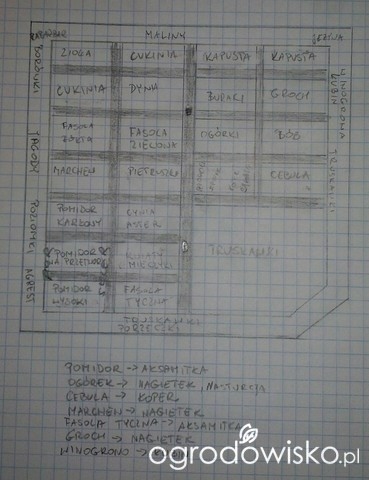 RABARBAR MALINY JEŻYNA
BORÓWKI
JAGODY
POZIOMKI
AGREST
WINOGRONA
ŁUBIN
TRUSKAWKI
ZIOŁA CUKINIA KAPUSTA KAPUSTA
CUKINIA DYNIA BURAKI GROCH
FASOLA ŻÓŁTA FASOLA ZIELONA OGÓRKI BÓB
MARCHEW PIETRUSZKA CEBULA
POMIDOR KARŁOWY CYNIA ASTER
TRUSKAWKI
POMIDOR NA PRZETWORY KWIATY
POMIDOR WYSOKI FASOLA TYCZNA
TRUSKAWKI
PORZECZKI
POMIDOR → AKSAMITKA
OGÓREK → NAGIETEK, NASTURCJA
CEBULA → KOPER,
MARCHEW → NAGIETEK
FASOLA TYCZNA → AKSAMITKA
GROCH → NAGIETEK
WINOGRONO → ŁUBIN
ogrodowisko.pl